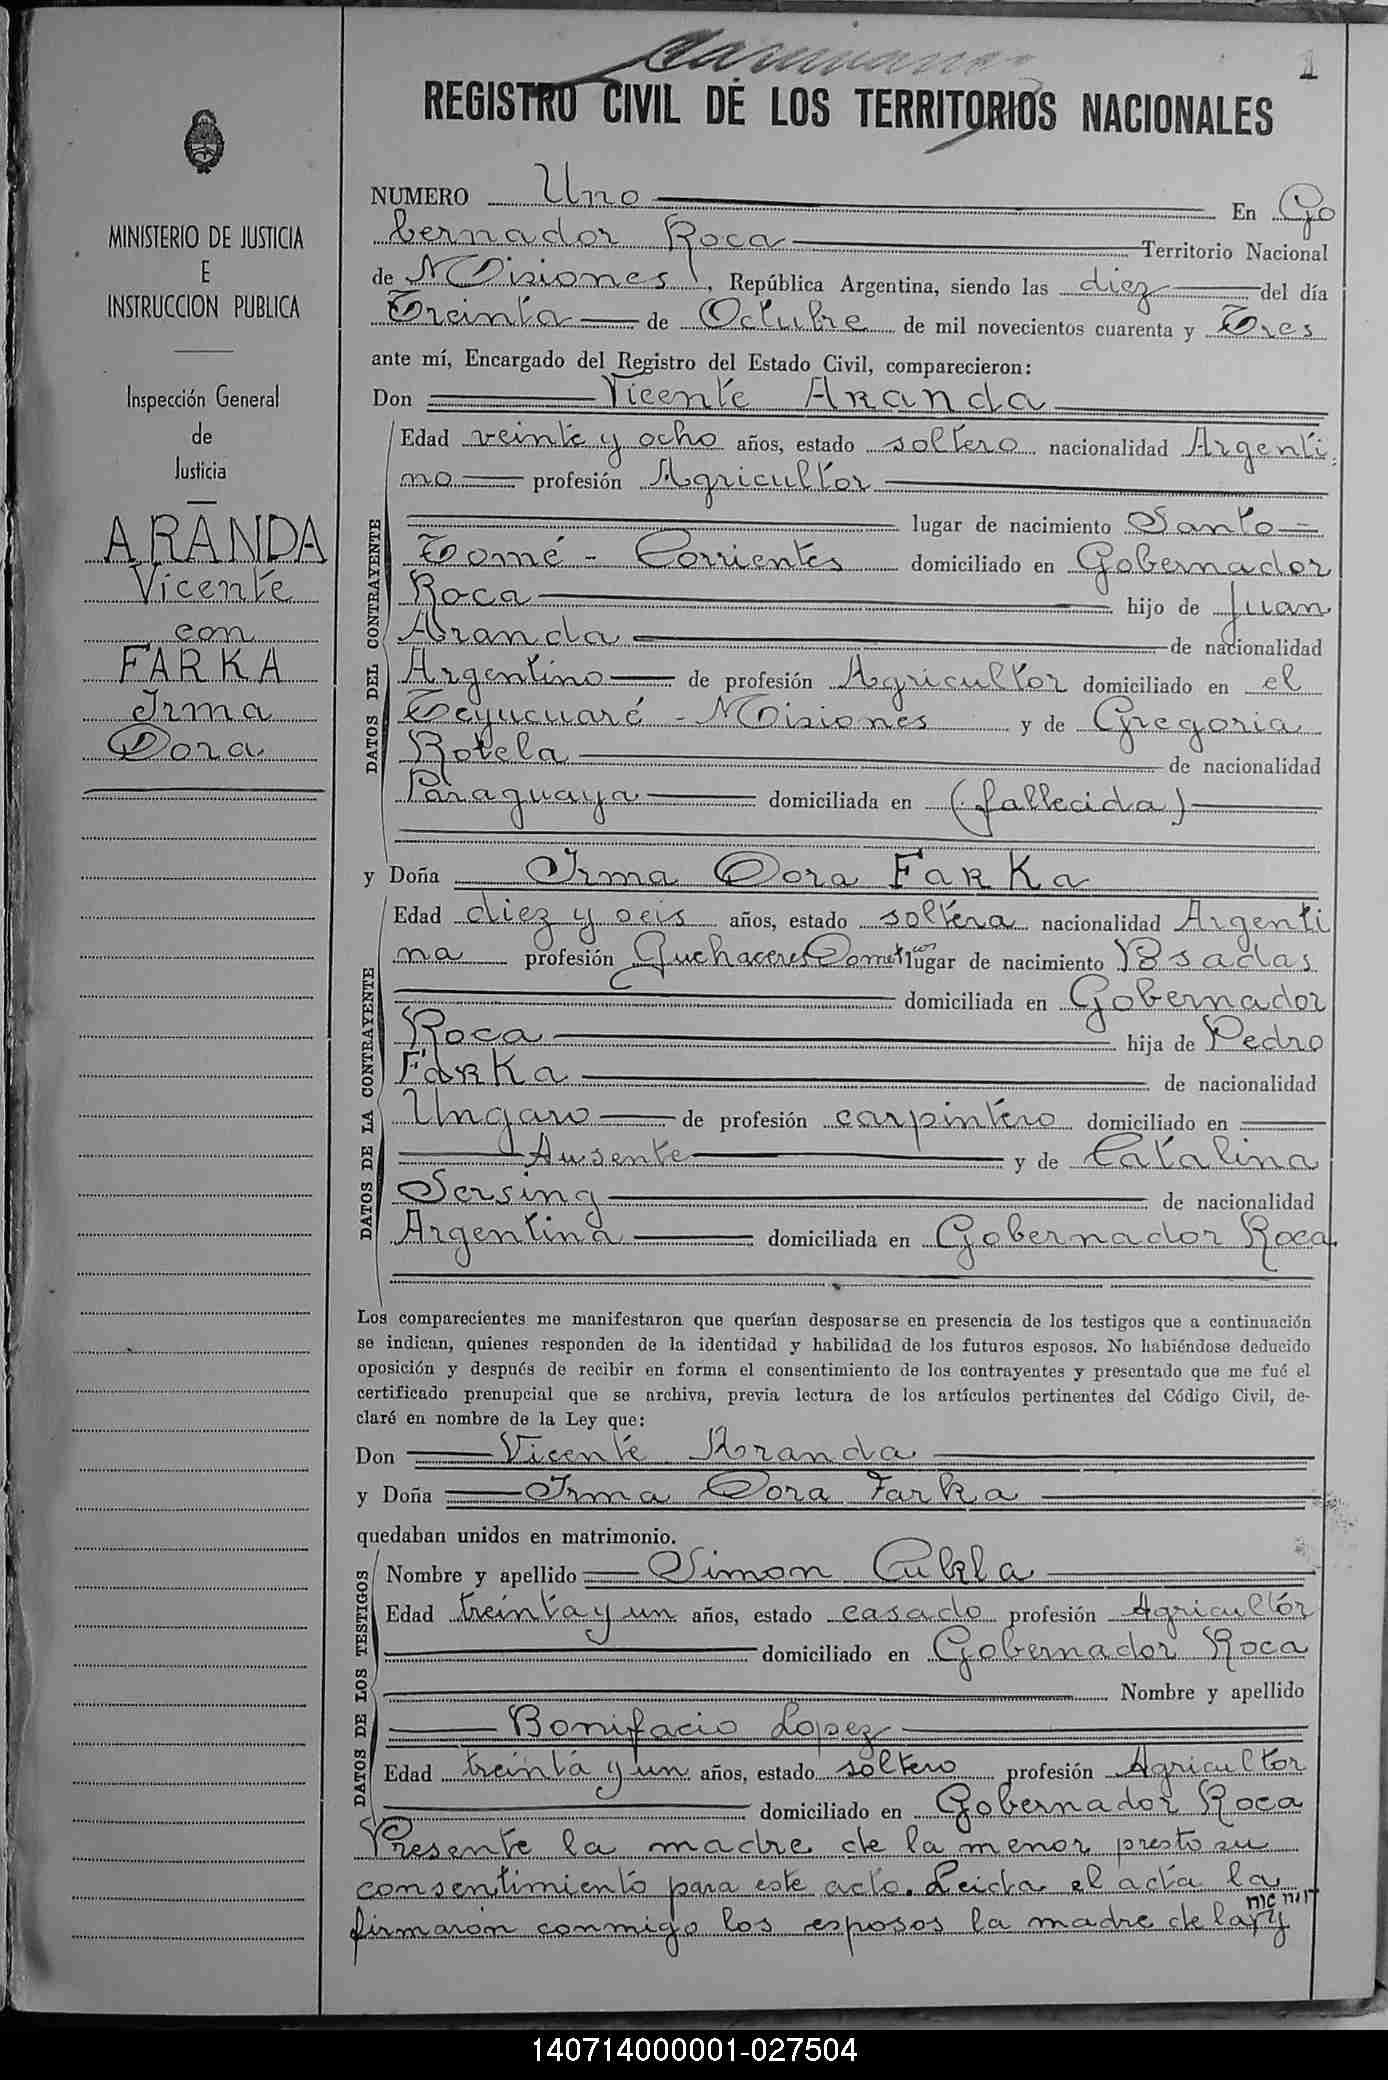 1
REGISTRO CIVIL DE LOS TERRITORIOS NACIONALES
MINISTERIO DE JUSTICIA
E
INSTRUCCION PUBLICA
Inspección General
de
Justicia
ARANDA
Vicente
con
FARKA
Irma
Dora
NUMERO Uno En Go
bernador Roca Territorio Nacional
de Misiones, República Argentina, siendo las diez del día
Treinta de Octubre de mil novecientos cuarenta y Tres
ante mí, Encargado del Registro del Estado Civil, comparecieron:
Don Vicente Aranda
DATOS DEL CONTRAYENTE
Edad veinte y ocho años, estado soltero nacionalidad Argenti
no profesión Agricultor
lugar de nacimiento Santo
Tomé - Corrientes domiciliado en Gobernador
Roca hijo de Juan
Aranda de nacionalidad
Argentino de profesión Agricultor domiciliado en el
Teyucuaré - Misiones y de Gregoria
Rotela de nacionalidad
Paraguaya domiciliada en (fallecida)
y Doña Irma Dora Farka
DATOS DE LA CONTRAYENTE
Edad diez y seis años, estado soltera nacionalidad Argenti
na profesión Quehaceres Domet cos lugar de nacimiento Psadas
domiciliada en Gobernador
Roca hija de Pedro
Farka de nacionalidad
Ungaro de profesión carpintero domiciliado en
Ausente y de Catalina
Sersing de nacionalidad
Argentina domiciliada en Gobernador Roca
Los comparecientes me manifestaron que querían desposarse en presencia de los testigos que a continuación
se indican, quienes responden de la identidad y habilidad de los futuros esposos. No habiéndose deducido
oposición y después de recibir en forma el consentimiento de los contrayentes y presentado que me fué el
certificado prenupcial que se archiva, previa lectura de los artículos pertinentes del Código Civil, de-
claré en nombre de la Ley que:
Don Vicente Aranda
y Doña Irma Dora Farka
quedaban unidos en matrimonio.
DATOS DE LOS TESTIGOS
Nombre y apellido Simon Cukla
Edad treinta y un años, estado casado profesión Agricultor
domiciliado en Gobernador Roca
Nombre y apellido
Bonifacio Lopez
Edad treinta y un años, estado soltero profesión Agricultor
domiciliado en Gobernador Roca
Presente la madre de la menor presto su
consentimiento para este acto. Leida el acta la
firmaron conmigo los esposos la madre de la y
140714000001-027504